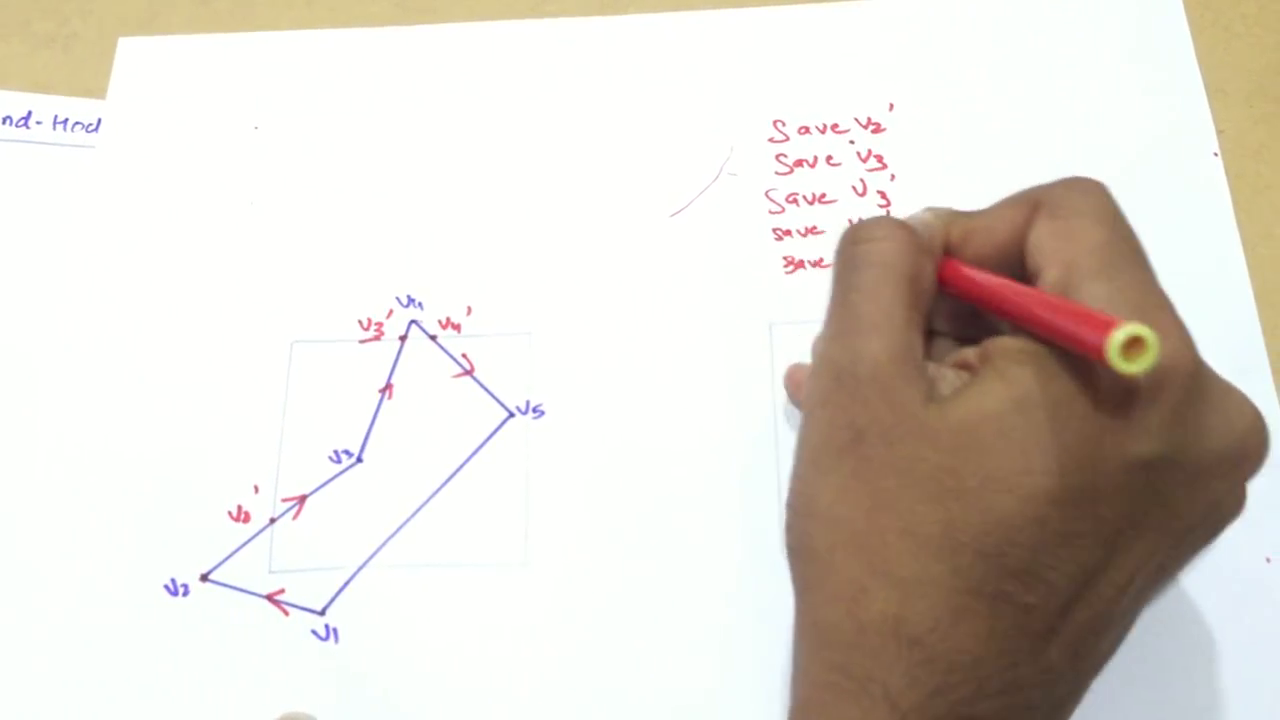 nd-Hod
Save V2'
Save V3
Save V3'
save
save
V4
V3'
V4'
V5
V3
V2'
V2
V1